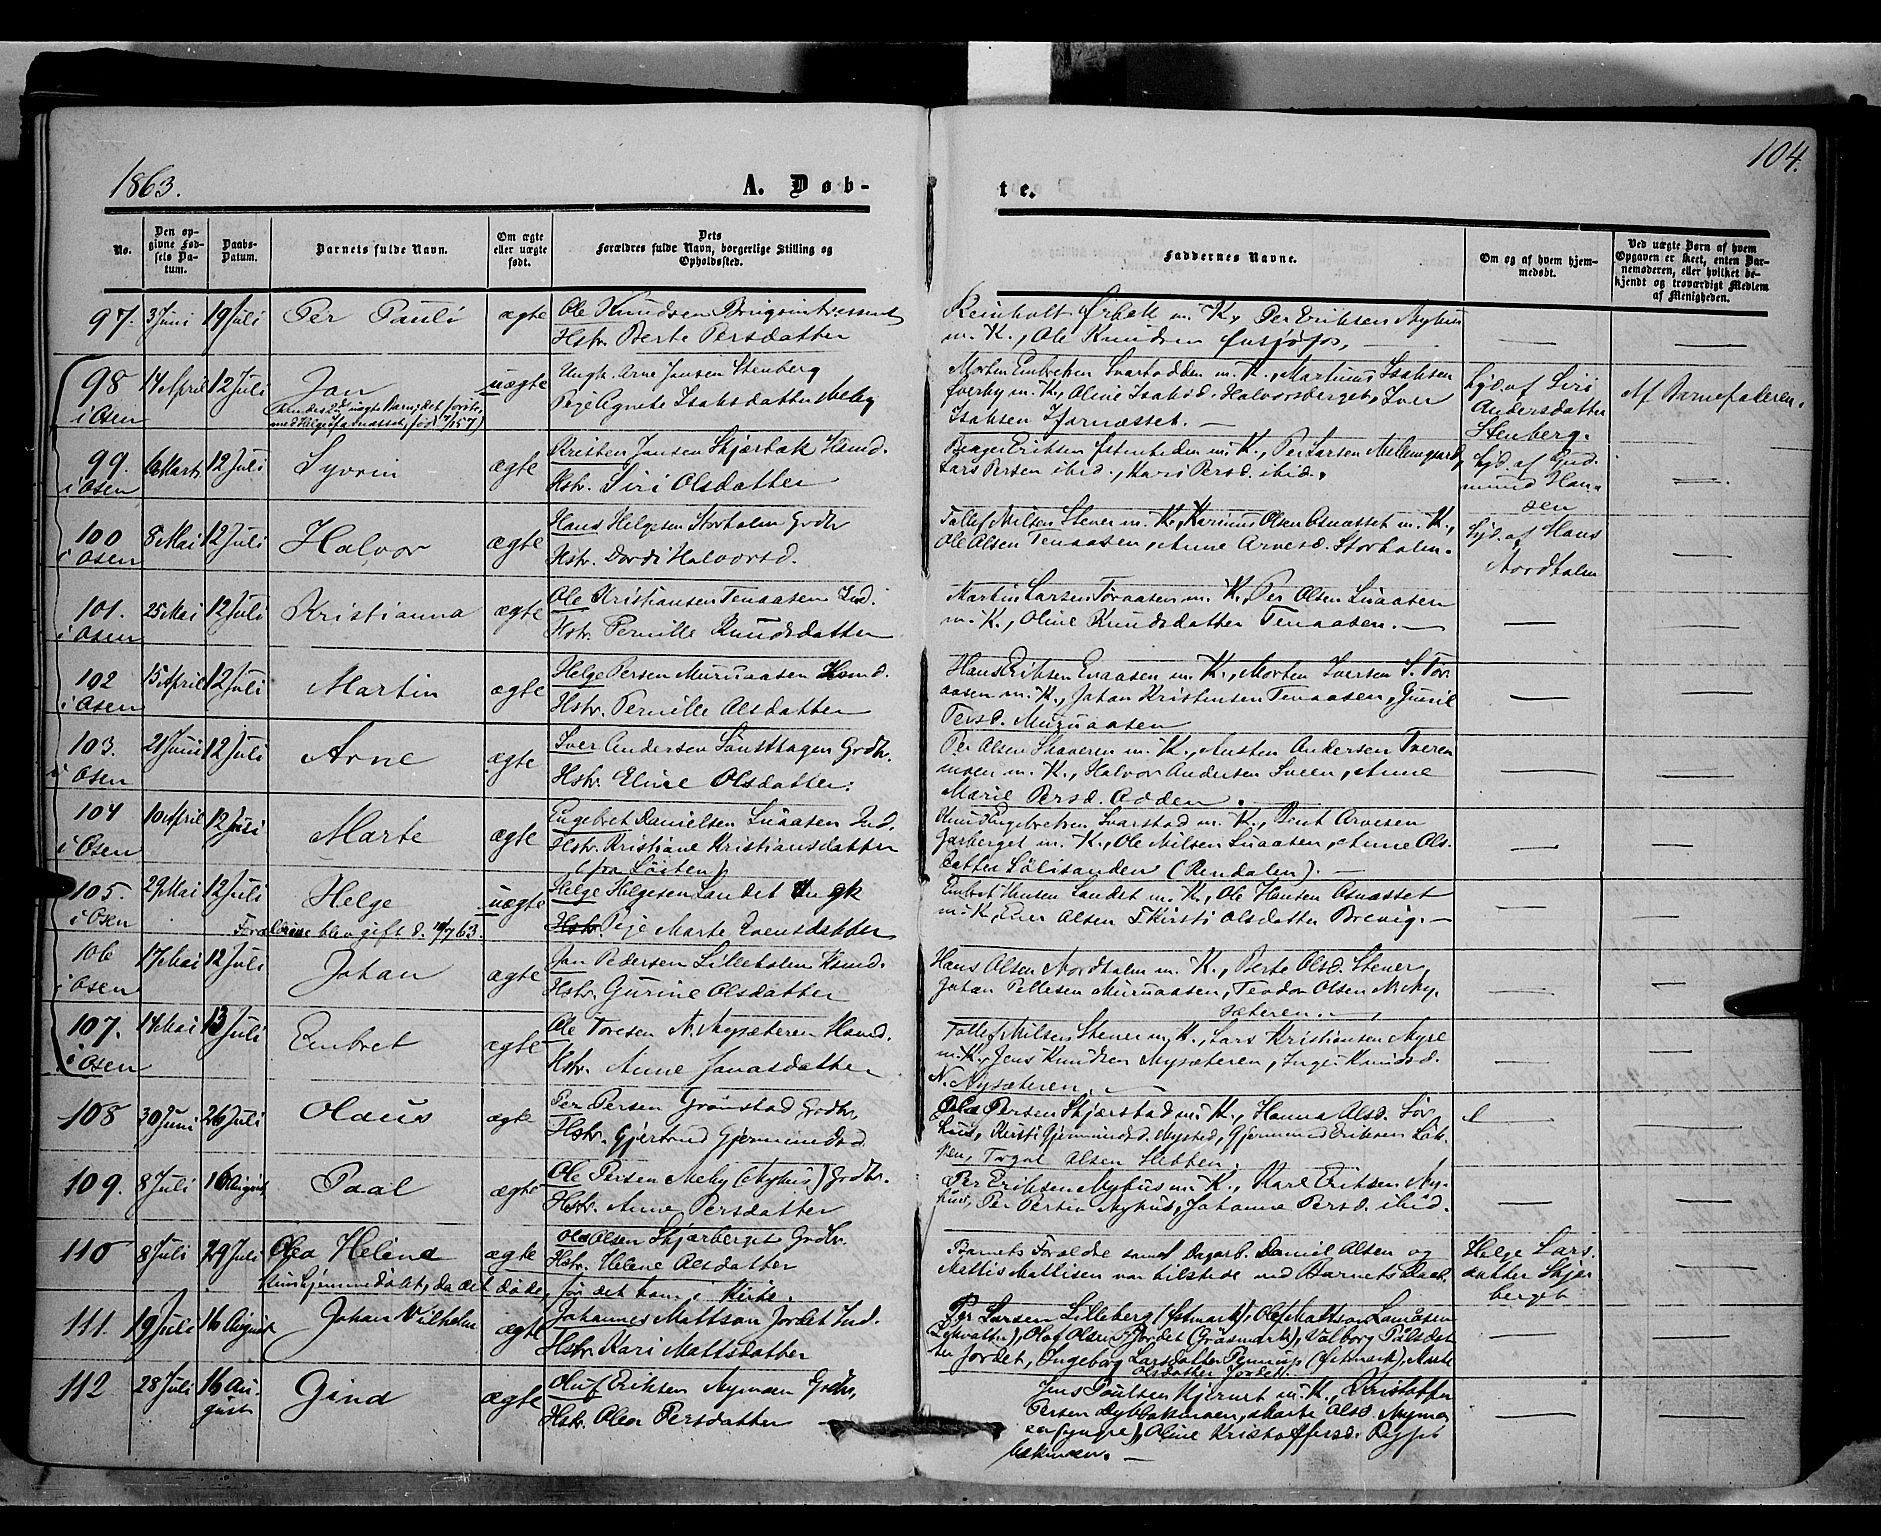 1863.
A. Døb-
te.
104.
No.
Den op-
givne Fød-
sels Da-
tum.
Daabs-
Datum.
Barnets fulde Navn.
Om ægte
eller uægte
født.
Dets
Forældres fulde Navn, borgerlige Stilling og
Opholdssted.
Faddernes Navne.
Om og af hvem hjem-
medøbt.
Ved uægte Børn af hvem
Opgaven er skeet, enten Bar-
nemoderen, eller hvilket be-
kjendt og troværdigt Medlem
af Menigheden.
97. 3 Juni 19 Juli Per Pauli ægte Ole Knudsen
Hstr. Berte Persdatter
Reinholt m. K., Per Eriksen Nyhus
m. K., Ole Knudsen
98 14 April 12 Juli Jan uægte Ungk. Arne Jansen Stenberg
i Osen
Pige Agnete Isaksdatter
Morten Embretsen Svartodden m. K., Martinus Isaksen
m. K., Oline Isaksd. Halvorsberget, Iver
Isaksen
Hjd. af Siri
Andersdatter
Stenberg.
Af Barnefaderen.
99. 6 Marts 12 Juli Syvrin ægte Kristen Jansen Skjærbak Husmd.
i Osen
Hstr. Siri Olsdatter
Eriksen m. K., Per Larsen Mellemgaard,
Lars Persen ibid., Kari Persd. ibid.
Hjd. af Gud-
mund Han-
sen
100 8 Mai 12 Juli Halvor ægte Hans Helgesen Storholm Grdbr
i Osen
Hstr. Dordi Halvorsd.
Tollef Nilsen Stener m. K., Karinus Olsen Osnæsset m. K.,
Ole Olsen Tenaasen, Anne Arnesd. Storholm.
Hjd. af Hans
Nordholm
101. 25 Mai 12 Juli Kristianna ægte Ole Kristiansen Tenaasen Ind.
i Osen
Hstr. Pernille Knudsdatter
Martin Larsen Toraasen m. K., Per Olsen Luaasen
m. K., Oline Knudsdatter Tenaasen.
102 15 April 12 Juli Martin ægte Helge Persen Muruaasen Husmd.
i Osen
Hstr. Pernille Olsdatter
Hans Eriksen Evaasen m. K., Morten Iversen S. Tor-
aasen m. K., Johan Kristensen Tenaasen, Gunil
Persd. Muruaasen
103. 21 Juni 12 Juli Arne ægte Iver Andersen Sønsthagen Grdbr.
i Osen
Hstr. Eline Olsdatter.
Per Olsen Skaveren m. K., Austen Andersen Tveren-
moen m. K., Halvor Andersen Sveen, Anne
Marie Persd. Odden.
104 10 April 12 Juli Marte ægte Engebret Danielsen Luaasen Ind.
i Osen
Hstr. Kristiane Kristiansdatter
(fra Løiten)
Knud Engebretsen Svarstad m. K., Bent Arvesen
m. K., Ole Nilsen Luaasen, Anne Ols-
datter Sølisanden (Rendalen).
105. 29 Mai 12 Juli Helge uægte Helge Helgesen Landet Ungk
i Osen
Forældrene blev gift d. 12/7 63.
Hstr. Pige Marte Evensdatter
Embret Hansen Landet m. K., Ole Hansen Osnæsset
m. K., Even Olsen & Kirsti Olsdatter Brevig.
106 17 Mai 12 Juli Johan ægte Jon Pedersen Lilleholm Husmd.
i Osen
Hstr. Gurine Olsdatter
Hans Olsen Nordholm m. K., Berte Olsd. Stener,
Johan Pellesen Muruaasen, Teodor Olsen N. Ny-
sæteren.
107. 14 Mai 13 Juli Embret ægte Ole Toresen N. Nysæteren Husmd.
i Osen
Hstr. Anne Jonasdatter
Tollef Nilsen Stener m. K., Lars Kristiansen Myre
m. K., Jens Knudsen Nysæteren, Inge Knudsd.
N. Nysæteren.
108 30 Juni 26 Juli Olaus ægte Per Persen Grønstad Grdbr.,
Hstr. Gjertrud Gjermundsd.
Ole Persen Skjærstad m. K., Hanna Olsd. Sør-
huus, Kirsti Gjermundsd. Nysted, Gjermund Eriksen Løk-
ken, Olsen
109. 8 Juli 16 August Paal ægte Ole Persen Moby (Nyhus) Grdbr.
Hstr. Anne Persdatter
Per Eriksen Nyhus m. K., Karl Eriksen Ny-
huus, Per Persen Nyhus, Johanne Persd. ibid.
110 8 Juli 29 Juli Olea Helene ægte Ole Olsen Skjærberget Grdbr.
Hstr. Helene Olsdatter
kun hjemmedøbt, da det døde, før det kom i Kirke.
Barnets Forældre samt Dagarb. Daniel Olsen og
Mattis Mattisen var tilstede ved Barnets Daab.
Helge Lars-
datter Skjær-
berget
111. 19 Juli 16 August Johan Vilhelm ægte Johannes Mattson Jordet Ind.
Hstr. Kari Mattsdatter
Per Larsen Lilleberg (Østmark), Olof Mattson
Olof Olsen Jordet (Gräsmark), Valborg Pålsdat-
ter Jordet, Ingeborg Larsdatter (Østmark), Marte
Olsdatter Jordet.
112 28 Juli 16 Au-
gust Gina ægte Oluf Eriksen Nymoen Grdbr,
Hstr. Olea Persdatter
Jens Poulsen Kjernet m. K., Kristoffer
Persen Dybbakmoen, Marte Olsd. Nymo-
en (yngre), Oline Kristoffersd. Dyb-
bakmoen.